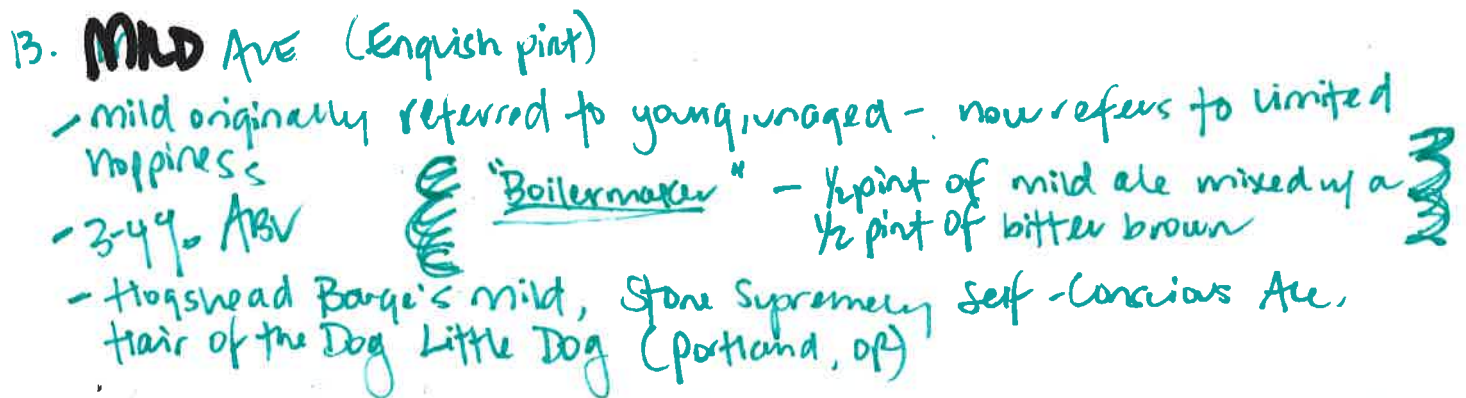 13. MILD ALE (English pint)
- mild originally referred to young, unaged - now refers to limited
hoppiness
- 3-4% ABV
"Boilermaker" - 1/2 pint of mild ale mixed w/ a
1/2 pint of bitter brown
- Hogshead Barge's mild, Stone Supremely Self-Conscious Ale,
Hair of the Dog Little Dog (Portland, OR)